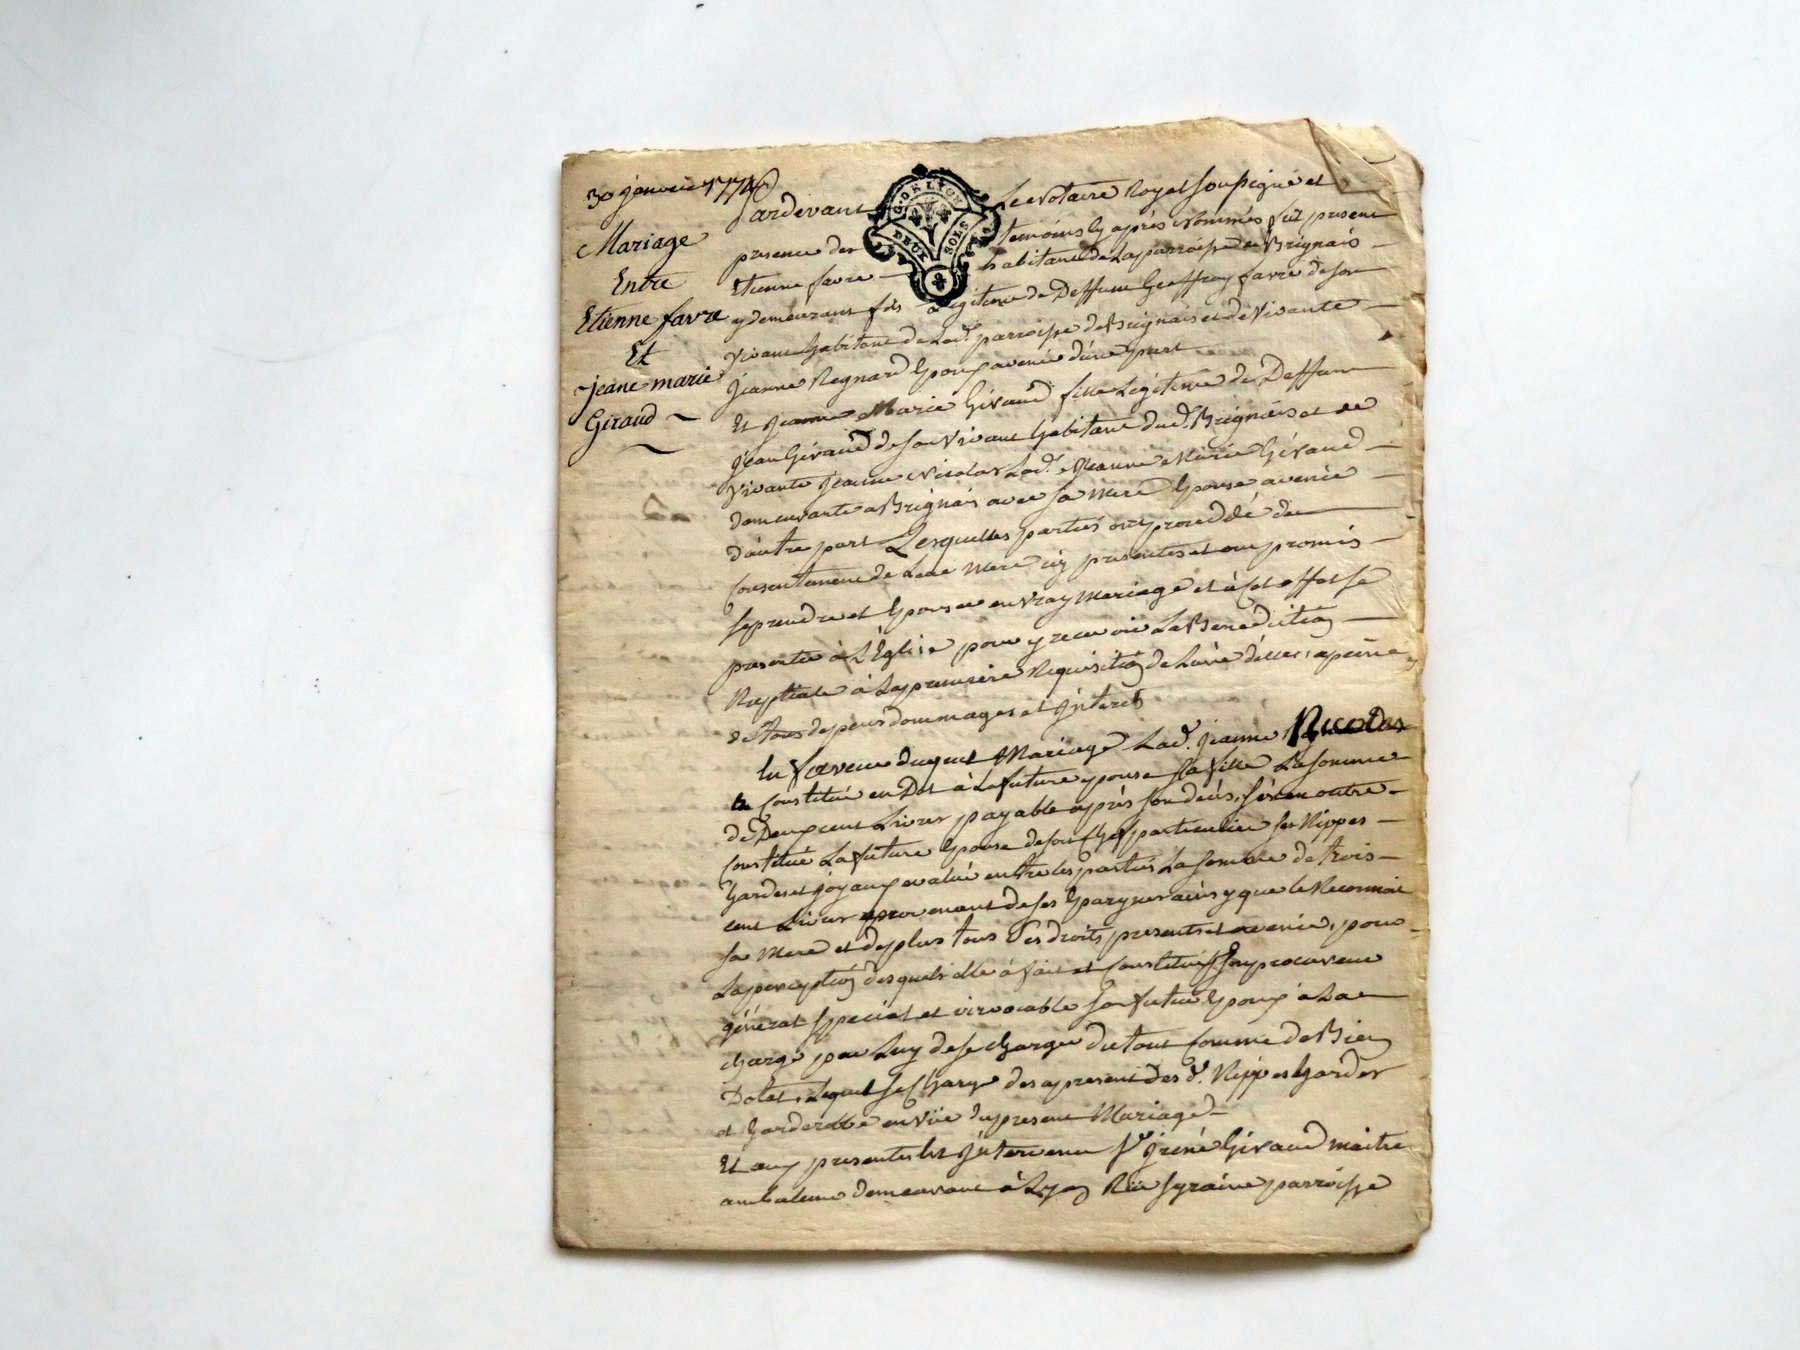 30 janvier
Mariage
Entre
Etienne favre
Et
jeane marie
Giraud
G. DE LYON
DEUX SOLS
Pardevant Le Notaire Royal soussigné et
presence des temoins cy après nommés fut present
Etienne favre habitant de La parroisse de Brignais
y demeurant fils Legitime de Deffunt Geoffroy favre de son
vivant habitant de Lad. parroisse de Brignais et de vivante
Jeanne Regnard Epoux avenir d'une part
Et Jeanne Marie Giraud fille Legitime de Deffunt
Jean Giraud de son vivant habitant dud. Brignais et de
vivante Jeanne Nicolas Lad. Jeanne Marie Giraud
demeurante a Brignais avec sa mere Epouse avenir
d'autre part Lesquelles parties ont proceddé du
Consentement de mere icy presentes et ont promis
se prendre et Epouser en vray Mariage et à Cet effet se
presenter à L'Eglise pour y recevoir La Benediction
Nuptiale à La premiere Requisition de L'une d'elles a peine
de tous depens dommages et Interets
En faveur duquel Mariage Lad. Jeanne Nicolas
Constitué en Dot à La future epouse sa fille La somme
de Deux cent Livres payable après son deces, en outre
Constitué La future Epouse de son Chef particulier ses Nippes
hardes et joyaux evalué entre les parties La somme de trois
cent Livres provenant de ses Epargnes ainsy que le Reconnoit
sa Mere et de plus tous ses droits presents et avenir, pour
La perception desquels elle à fait et Constitué son procureur
général special et irrvocable son futur Epoux à La
charge par Luy de se charger du tout Comme de Bien
Dotal, Lequel se Charge des apresent des d. Nippes hardes
et Garderobe en vüe du present Mariage
Et aux presentes Est Intervenu Sr. Irené Giraud maitre
ambaleur demeurant à Lyon Rüe parroisse